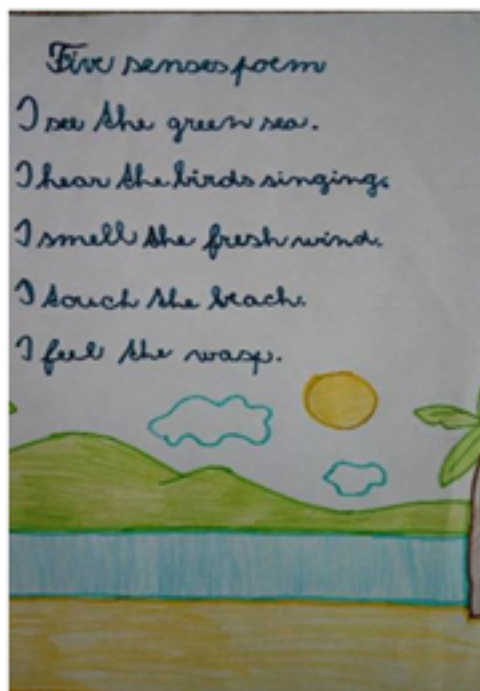 Five senses poem
I see the green sea.
I hear the birds singing.
I smell the fresh wind.
I touch the beach.
I feel the wasp.